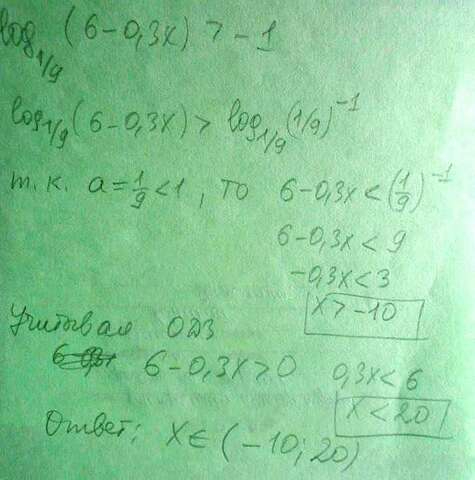 log₁/₉ (6-0,3x) > -1
log₁/₉ (6-0,3x) > log₁/₉ (1/9)⁻¹
т.к. a = 1/9 < 1, то 6-0,3x < (1/9)⁻¹
6-0,3x < 9
-0,3x < 3
x > -10
Учитывая ОДЗ
6-0,3x > 0 0,3x < 6
x < 20
Ответ: x ∈ (-10; 20)